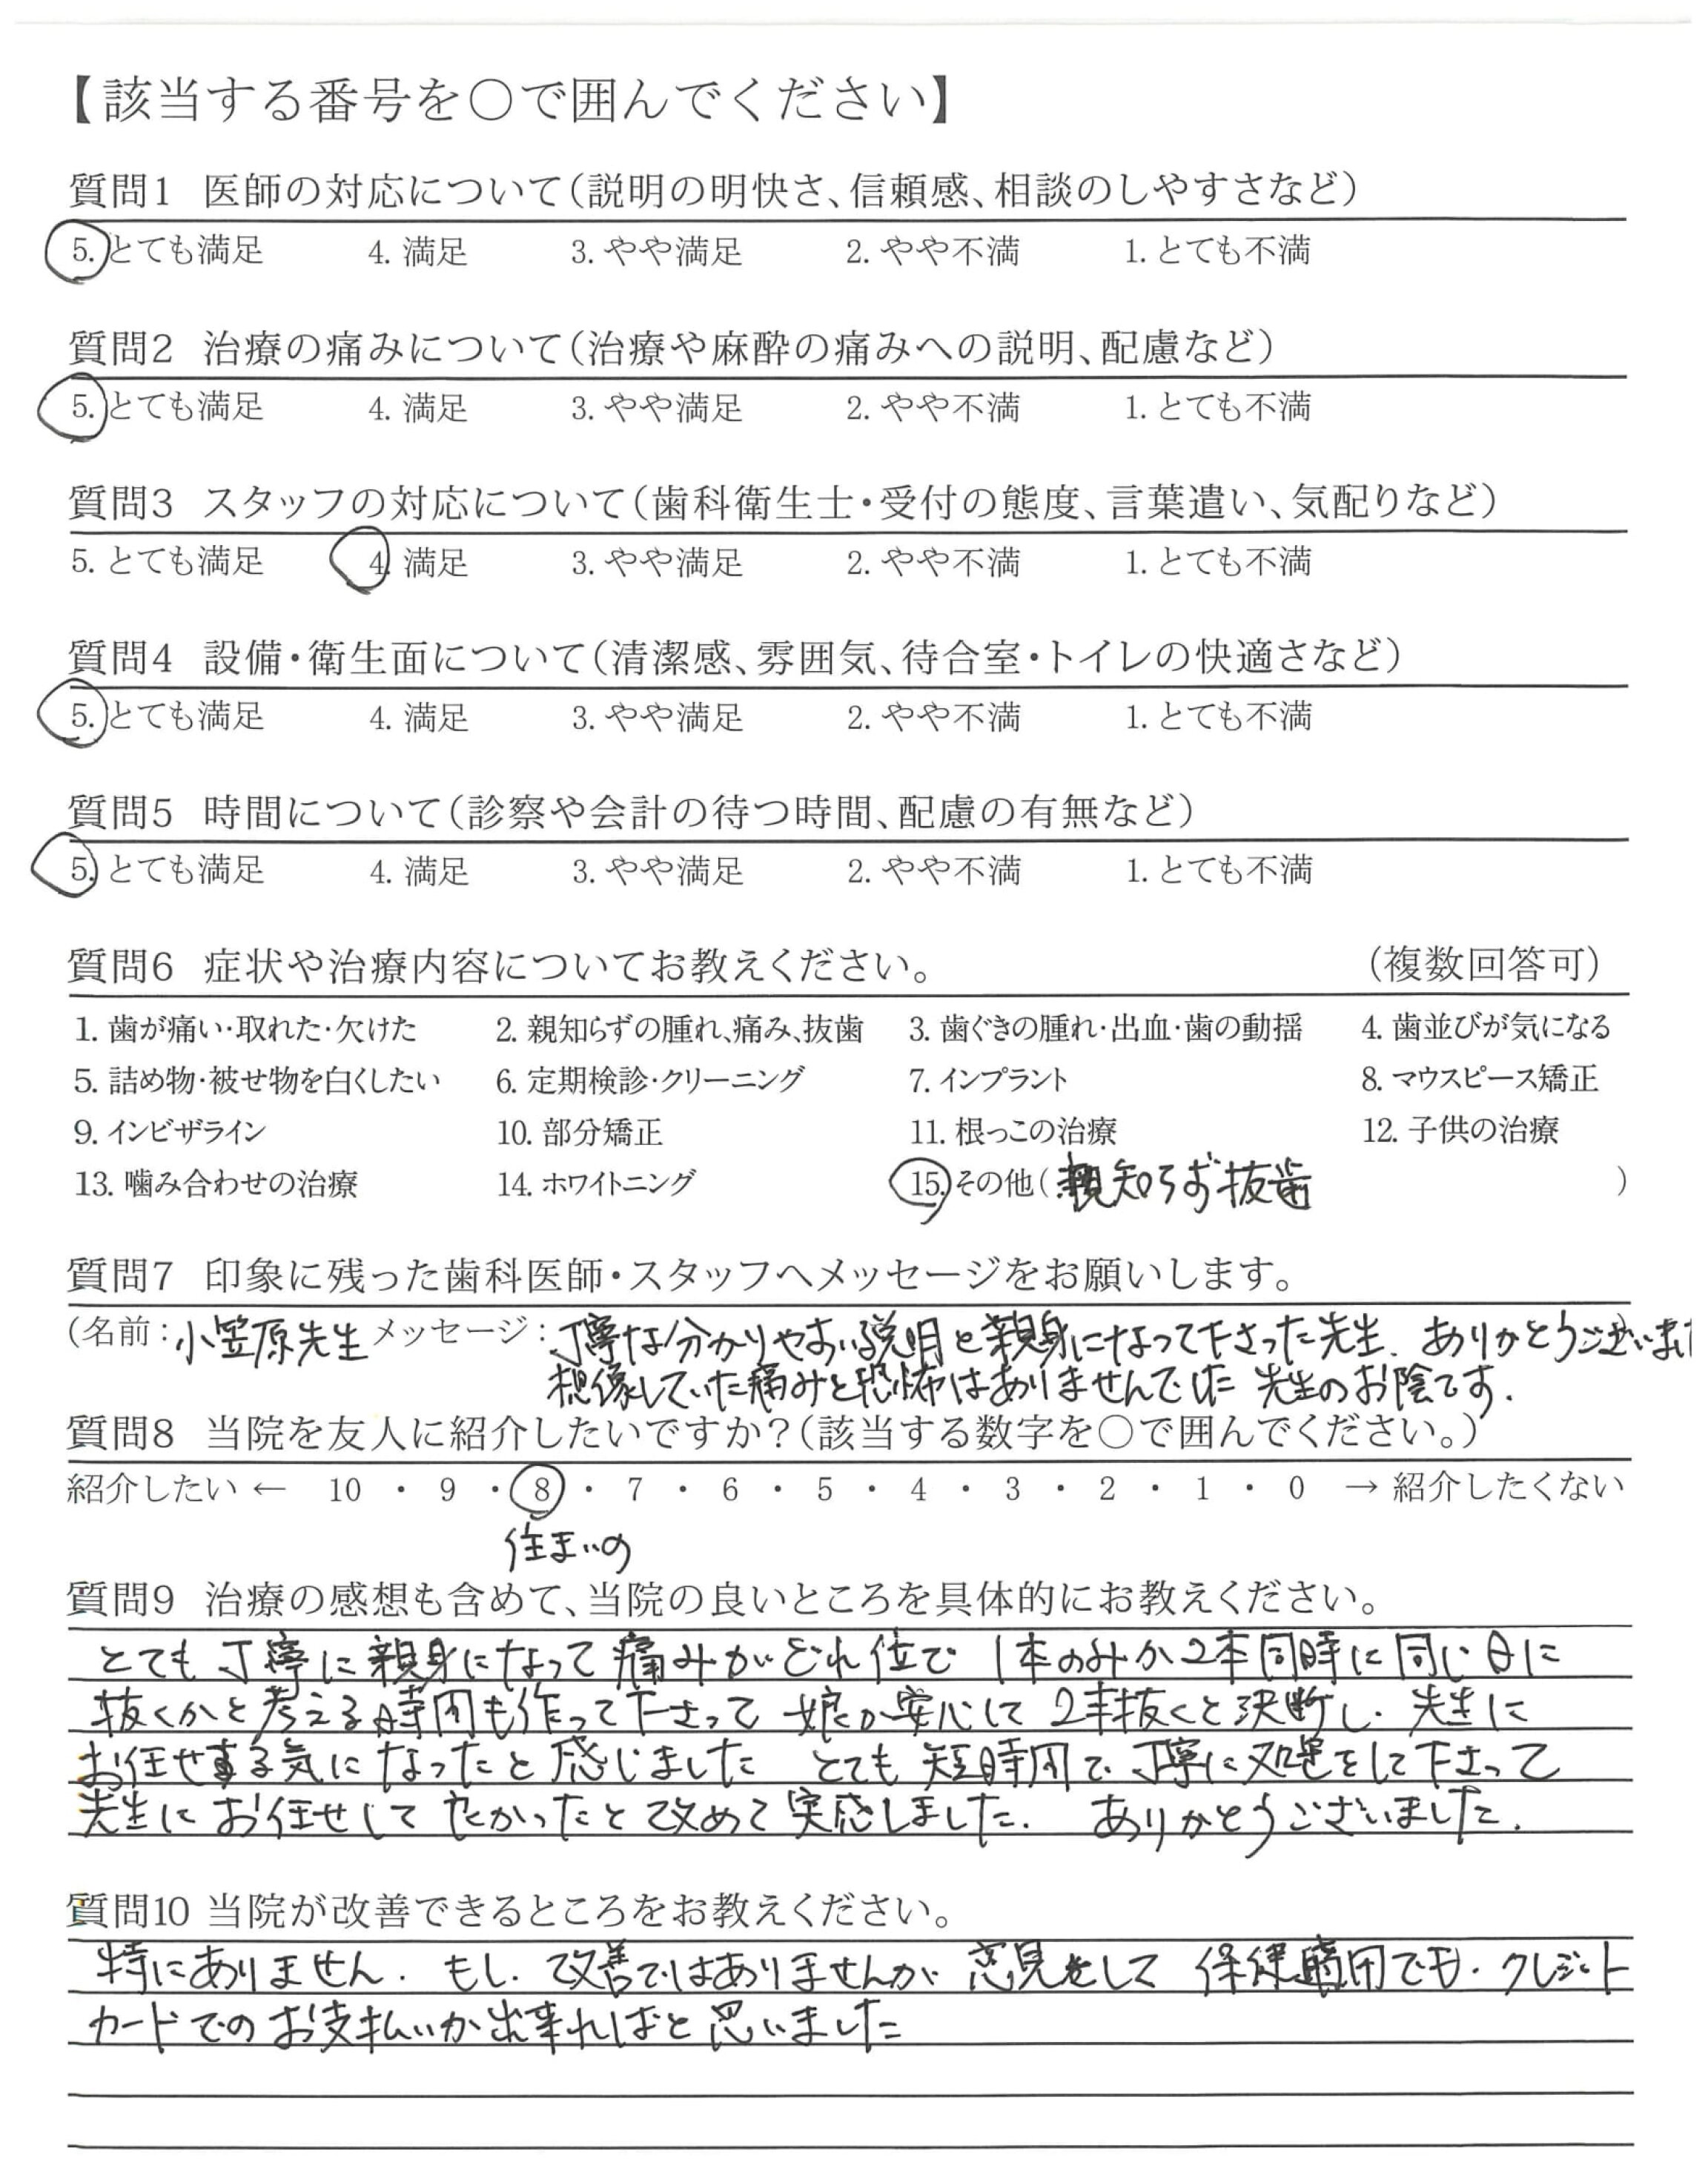 【該当する番号を○で囲んでください】
質問1 医師の対応について(説明の明快さ、信頼感、相談のしやすさなど)
5. とても満足 4. 満足 3. やや満足 2. やや不満 1. とても不満
質問2 治療の痛みについて(治療や麻酔の痛みへの説明、配慮など)
5. とても満足 4. 満足 3. やや満足 2. やや不満 1. とても不満
質問3 スタッフの対応について(歯科衛生士・受付の態度、言葉遣い、気配りなど)
5. とても満足 4. 満足 3. やや満足 2. やや不満 1. とても不満
質問4 設備・衛生面について(清潔感、雰囲気、待合室・トイレの快適さなど)
5. とても満足 4. 満足 3. やや満足 2. やや不満 1. とても不満
質問5 時間について(診察や会計の待つ時間、配慮の有無など)
5. とても満足 4. 満足 3. やや満足 2. やや不満 1. とても不満
質問6 症状や治療内容についてお教えください。 (複数回答可)
1. 歯が痛い・取れた・欠けた 2. 親知らずの腫れ、痛み、抜歯 3. 歯ぐきの腫れ・出血・歯の動揺 4. 歯並びが気になる
5. 詰め物・被せ物を白くしたい 6. 定期検診・クリーニング 7. インプラント 8. マウスピース矯正
9. インビザライン 10. 部分矯正 11. 根っこの治療 12. 子供の治療
13. 噛み合わせの治療 14. ホワイトニング 15. その他(親知らず抜歯 )
質問7 印象に残った歯科医師・スタッフへメッセージをお願いします。
(名前:小笠原先生 メッセージ:丁寧な分かりやすい説明と親身になって下さった先生. ありがとうございまし
想像していた痛みと恐怖はありませんでした 先生のお陰です.
質問8 当院を友人に紹介したいですか?(該当する数字を○で囲んでください。)
紹介したい ← 10 ・ 9 ・ 8 ・ 7 ・ 6 ・ 5 ・ 4 ・ 3 ・ 2 ・ 1 ・ 0 → 紹介したくない
住まいの
質問9 治療の感想も含めて、当院の良いところを具体的にお教えください。
とても丁寧に親身になって痛みがどれ位で 1本のみか2本同時に同じ日に
抜くかと考える時間も作って下さって 娘が安心して 2本抜くと決断し. 先生に
お任せする気になったと感じました とても短時間で. 丁寧に処置をして下さって
先生にお任せして良かったと改めて実感しました. ありがとうございました.
質問10 当院が改善できるところをお教えください。
特にありません. もし. 改善ではありませんが 意見として 保険適用でも. クレジット
カードでのお支払いが出来ればと思いました